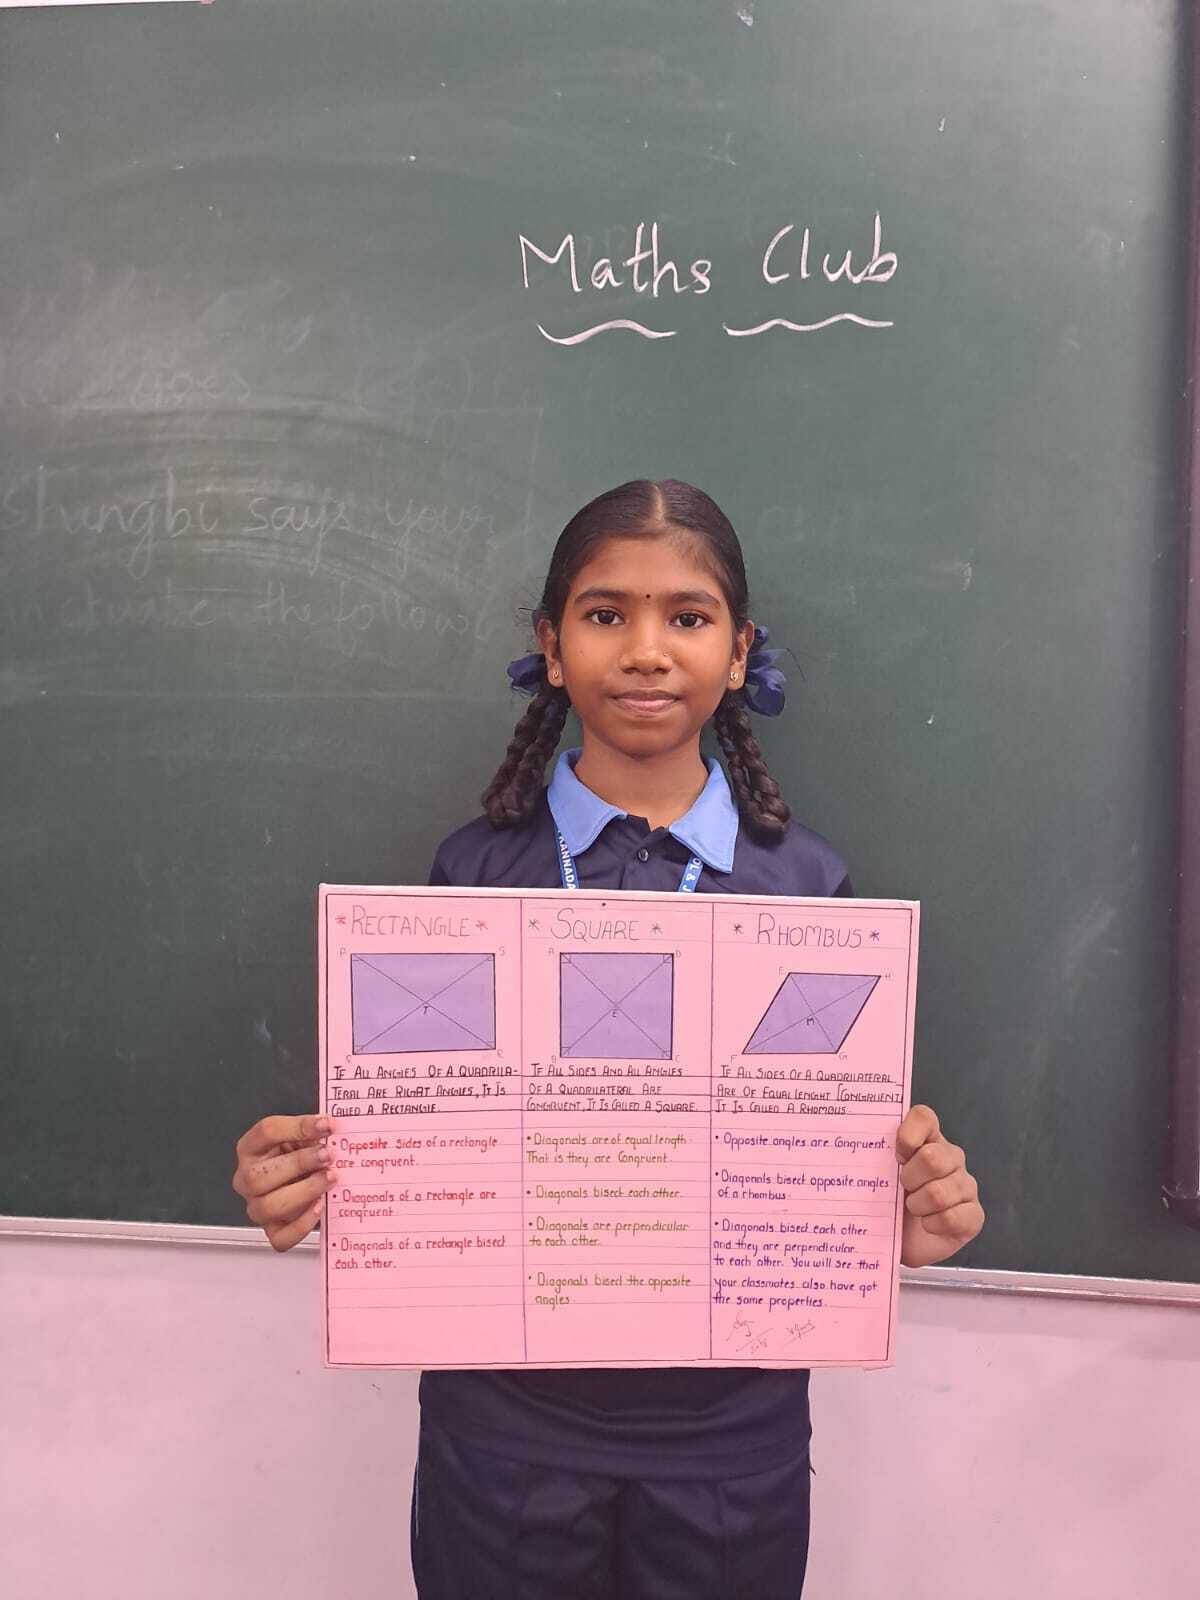 Maths Club
says your
the follow
KANNADA
OL & J
* RECTANGLE *
P
S
T
Q
R
IF ALL ANGLES OF A QUADRILA-
TERAL ARE RIGHT ANGLES, IT IS
CALLED A RECTANGLE.
• Opposite sides of a rectangle
are congruent.
• Diagonals of a rectangle are
congruent.
• Diagonals of a rectangle bisect
each other.
* SQUARE *
A
D
E
B
C
IF ALL SIDES AND ALL ANGLES
OF A QUADRILATERAL ARE
CONGRUENT, IT IS CALLED A SQUARE.
• Diagonals are of equal length.
That is they are Congruent.
• Diagonals bisect each other.
• Diagonals are perpendicular
to each other.
• Diagonals bisect the opposite
angles.
* RHOMBUS *
E
H
M
F
G
IF ALL SIDES OF A QUADRILATERAL
ARE OF EQUAL LENGHT (CONGRUENT)
IT IS CALLED A RHOMBUS.
• Opposite angles are Congruent.
• Diagonals bisect opposite angles
of a rhombus.
• Diagonals bisect each other
and they are perpendicular
to each other. You will see that
your classmates also have got
the same properties.